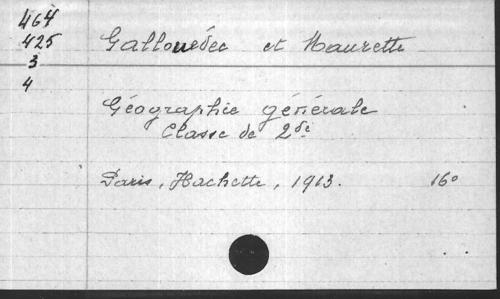 464
425
3
4
Gallouédec et Maurette
Géographie générale
Classe de 2de
Paris, Hachette, 1913. 16°